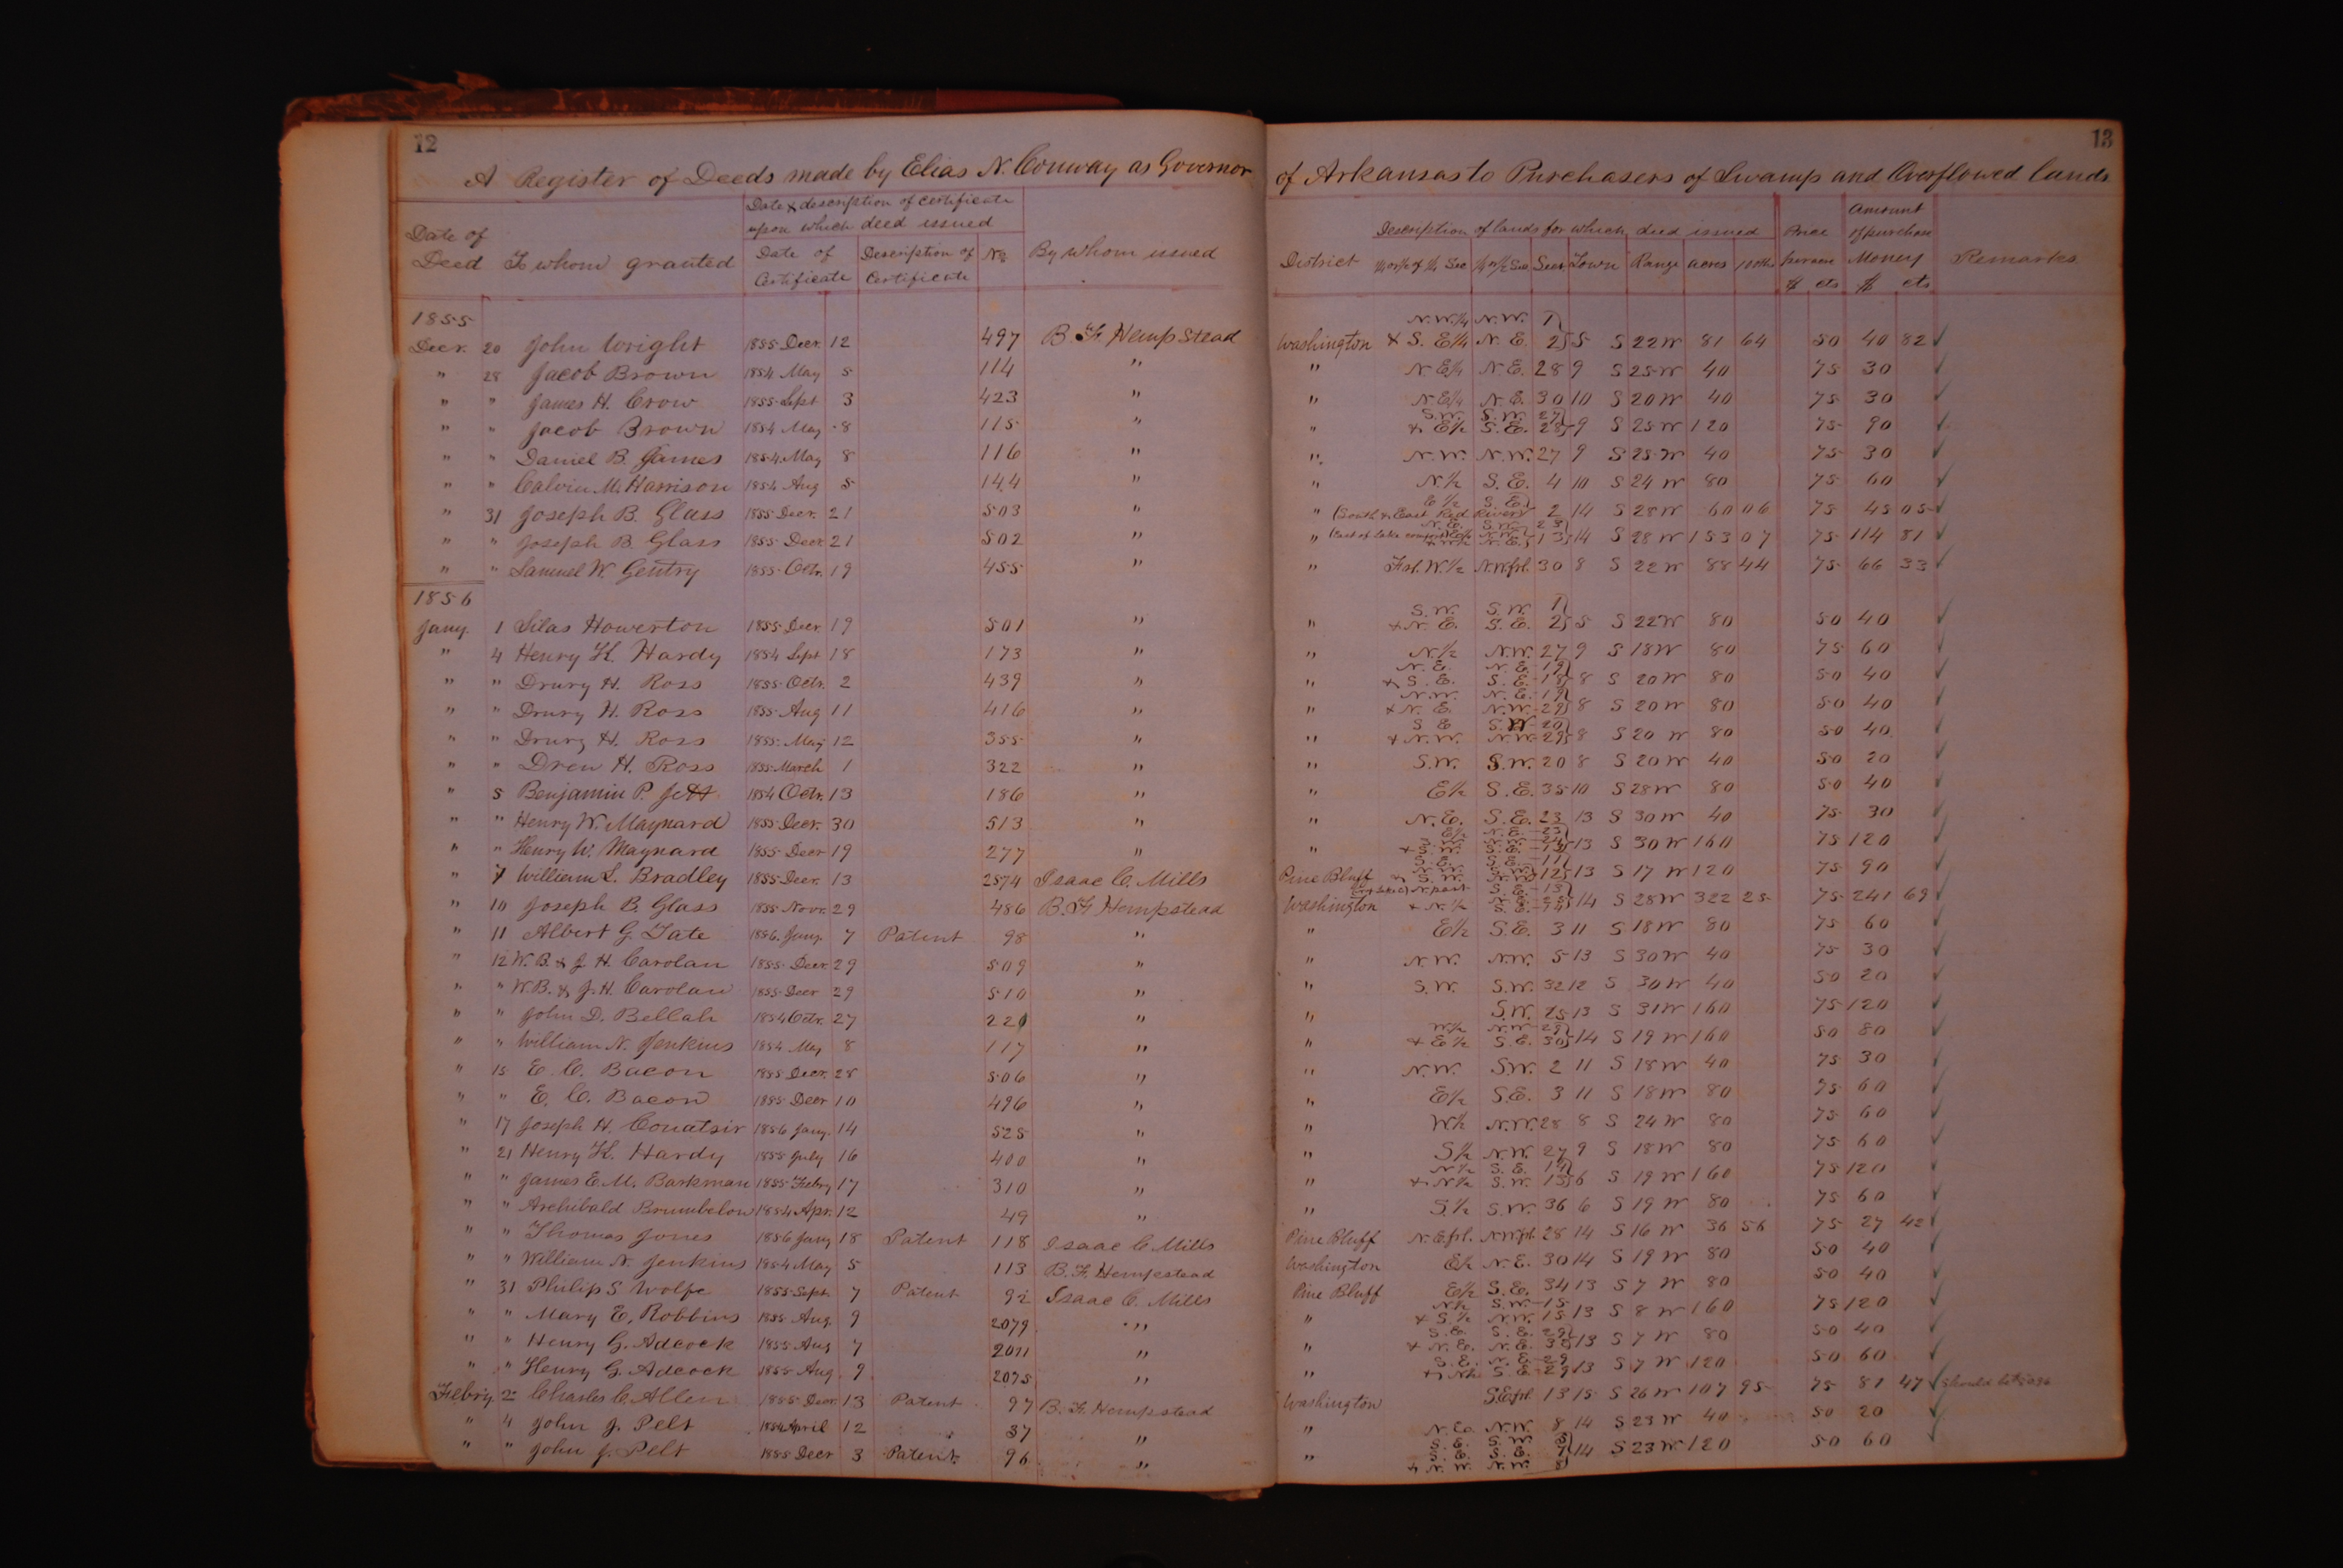 12
A Register of Deeds made by Elias N. Conway as Governor
Date of Deed
To whom granted
Date & description of certificate upon which deed issued
Date of Certificate
Description of Certificate
No.
By Whom issued
1855
Decr. 20 John Wright 1855 Decr. 12 497 B. F. Hempstead
" 28 Jacob Brown 1854 May 5 114 "
" " James H. Crow 1855 Sept 3 423 "
" " Jacob Brown 1854 May 8 115 "
" " Daniel B. James 1854 May 8 116 "
" " Calvin M. Harrison 1854 Aug 5 144 "
" 31 Joseph B. Glass 1855 Decr. 21 503 "
" " Joseph B. Glass 1855 Decr 21 502 "
" " Samuel W. Gentry 1855 Octr. 19 455 "
1856
Jany. 1 Silas Howerton 1855 Decr 19 501 "
" 4 Henry K. Hardy 1854 Sept 18 173 "
" " Drury H. Ross 1855 Octr. 2 439 "
" " Drury H. Ross 1855 Aug 11 416 "
" " Drury H. Ross 1855 May 12 355 "
" " Drew H. Ross 1855 March 1 322 "
" 5 Benjamin P. Jett 1854 Octr. 13 186 "
" " Henry W. Maynard 1855 Decr. 30 513 "
" " Henry W. Maynard 1855 Decr 19 277 "
" 7 William L. Bradley 1855 Decr. 13 2574 Isaac C. Mills
" 10 Joseph B. Glass 1855 Novr. 29 486 B. F. Hempstead
" 11 Albert G. Tate 1856 Jany. 7 Patent 98 "
" 12 W. B. & J. H. Carolan 1855 Decr 29 509 "
" " W. B. & J. H. Carolan 1855 Decr 29 510 "
" " John D. Bellah 1854 Octr. 27 220 "
" " William N. Jenkins 1854 May 8 117 "
" 15 E. C. Bacon 1855 Decr. 28 506 "
" " E. C. Bacon 1855 Decr 10 496 "
" 17 Joseph H. Couatsir 1856 Jany. 14 525 "
" 21 Henry K. Hardy 1855 July 16 400 "
" " James E. M. Barkman 1855 Febry 17 310 "
" " Archibald Brumbelow 1854 Apr. 12 49 "
" " Thomas Jones 1856 Jany 18 Patent 118 Isaac C Mills
" " William N. Jenkins 1854 May 5 113 B. F. Hempstead
" 31 Philip S Wolfe 1855 Sept. 7 Patent 92 Isaac C. Mills
" " Mary E. Robbins 1855 Aug. 9 2079 "
" " Henry G. Adcock 1855 Aug 7 2011 "
" " Henry G. Adcock 1855 Aug. 9 2075 "
Febry. 2 Charles C. Allen 1855 Decr. 13 Patent 97 B. F. Hempstead
" 4 John J. Pelt 1854 April 12 37 "
" " John J. Pelt 1855 Decr 3 Patent 96 "
13
of Arkansas to Purchasers of Swamp and Overflowed lands
Description of lands for which deed issued
District
Sec
Town
Range
acres
Price per acre
$ cts
Amount of purchase Money
$ cts
Remarks
N.W.¼ N.W. 1
Washington & S. E¼ N. E. 2 5 S 22 W 81 64 50 40 82
" N. E¼ N. E. 28 9 S 25 W 40 75 30
" N. E¼ N. E. 30 10 S 20 W 40 75 30
S.W. S.W. 27
" & E½ S. E. 28 9 S 25 W 120 75 90
" N. W. N. W. 27 9 S 25 W 40 75 30
" N.½ S. E. 4 10 S 24 W 80 75 60
E½ S. E.
" (South & East Red River) 2 14 S 28 W 60 06 75 45 05
N. E. S.W. 23
" 13 14 S 28 W 153 07 75 114 81
" Frl. W.½ N.W. frl. 30 8 S 22 W 88 44 75 66 33
S. W. S. W. 1
" & N. E. S. E. 2 5 S 22 W 80 50 40
" N.½ N.W. 27 9 S 18 W 80 75 60
N. E. N. E. 19
" & S. E. S. E. 18 8 S 20 W 80 50 40
N.W. N. E. 19
" & N. E. N.W. 29 8 S 20 W 80 50 40
S E S.W 20
" & N.W. N.W. 29 8 S 20 W 80 50 40
" S.W. S.W. 20 8 S 20 W 40 50 20
" E½ S. E. 35 10 S 28 W 80 50 40
" N. E. S. E. 23 13 S 30 W 40 75 30
E½ N. E. 23
" 13 S 30 W 160 75 120
Pine Bluff 12 13 S 17 W 120 75 90
Washington & N.½ 14 S 28 W 322 25 75 241 69
" E½ S. E. 3 11 S 18 W 80 75 60
" N. W. N.W. 5 13 S 30 W 40 75 30
" S. W. S.W. 32 12 S 30 W 40 50 20
" S.W. 25 13 S 31 W 160 75 120
W½ N.W 29
" & E½ S. E. 30 14 S 19 W 160 50 80
" N. W. S.W. 2 11 S 18 W 40 75 30
" E½ S. E. 3 11 S 18 W 80 75 60
" W½ N.W. 28 8 S 24 W 80 75 60
" S½ N.W. 27 9 S 18 W 80 75 60
N½ S. E. 14
" & N½ S. W. 13 6 S 19 W 160 75 120
" S.½ S.W. 36 6 S 19 W 80 75 60
Pine Bluff N. E frl. N.W frl. 28 14 S 16 W 36 56 75 27 42
Washington E½ N. E. 30 14 S 19 W 80 50 40
Pine Bluff E½ S. E. 34 13 S 7 W 80 50 40
N½ S. W 15
" & S.½ N.W. 15 13 S 8 W 160 75 120
S. E. S. E. 29
" & N. E. N. E. 32 13 S 7 W 80 50 40
S. E. N. E. 29
" & N½ S. E 29 13 S 7 W 120 50 60
Washington S.E frl. 13 15 S 26 W 107 95 75 81 47 Should be
" N. E. N.W. 8 14 S 23 W 40 50 20
S. E. S. W. 5
" S. E. S. E. 7 14 S 23 W 120 50 60
& N. W. N.W. 8